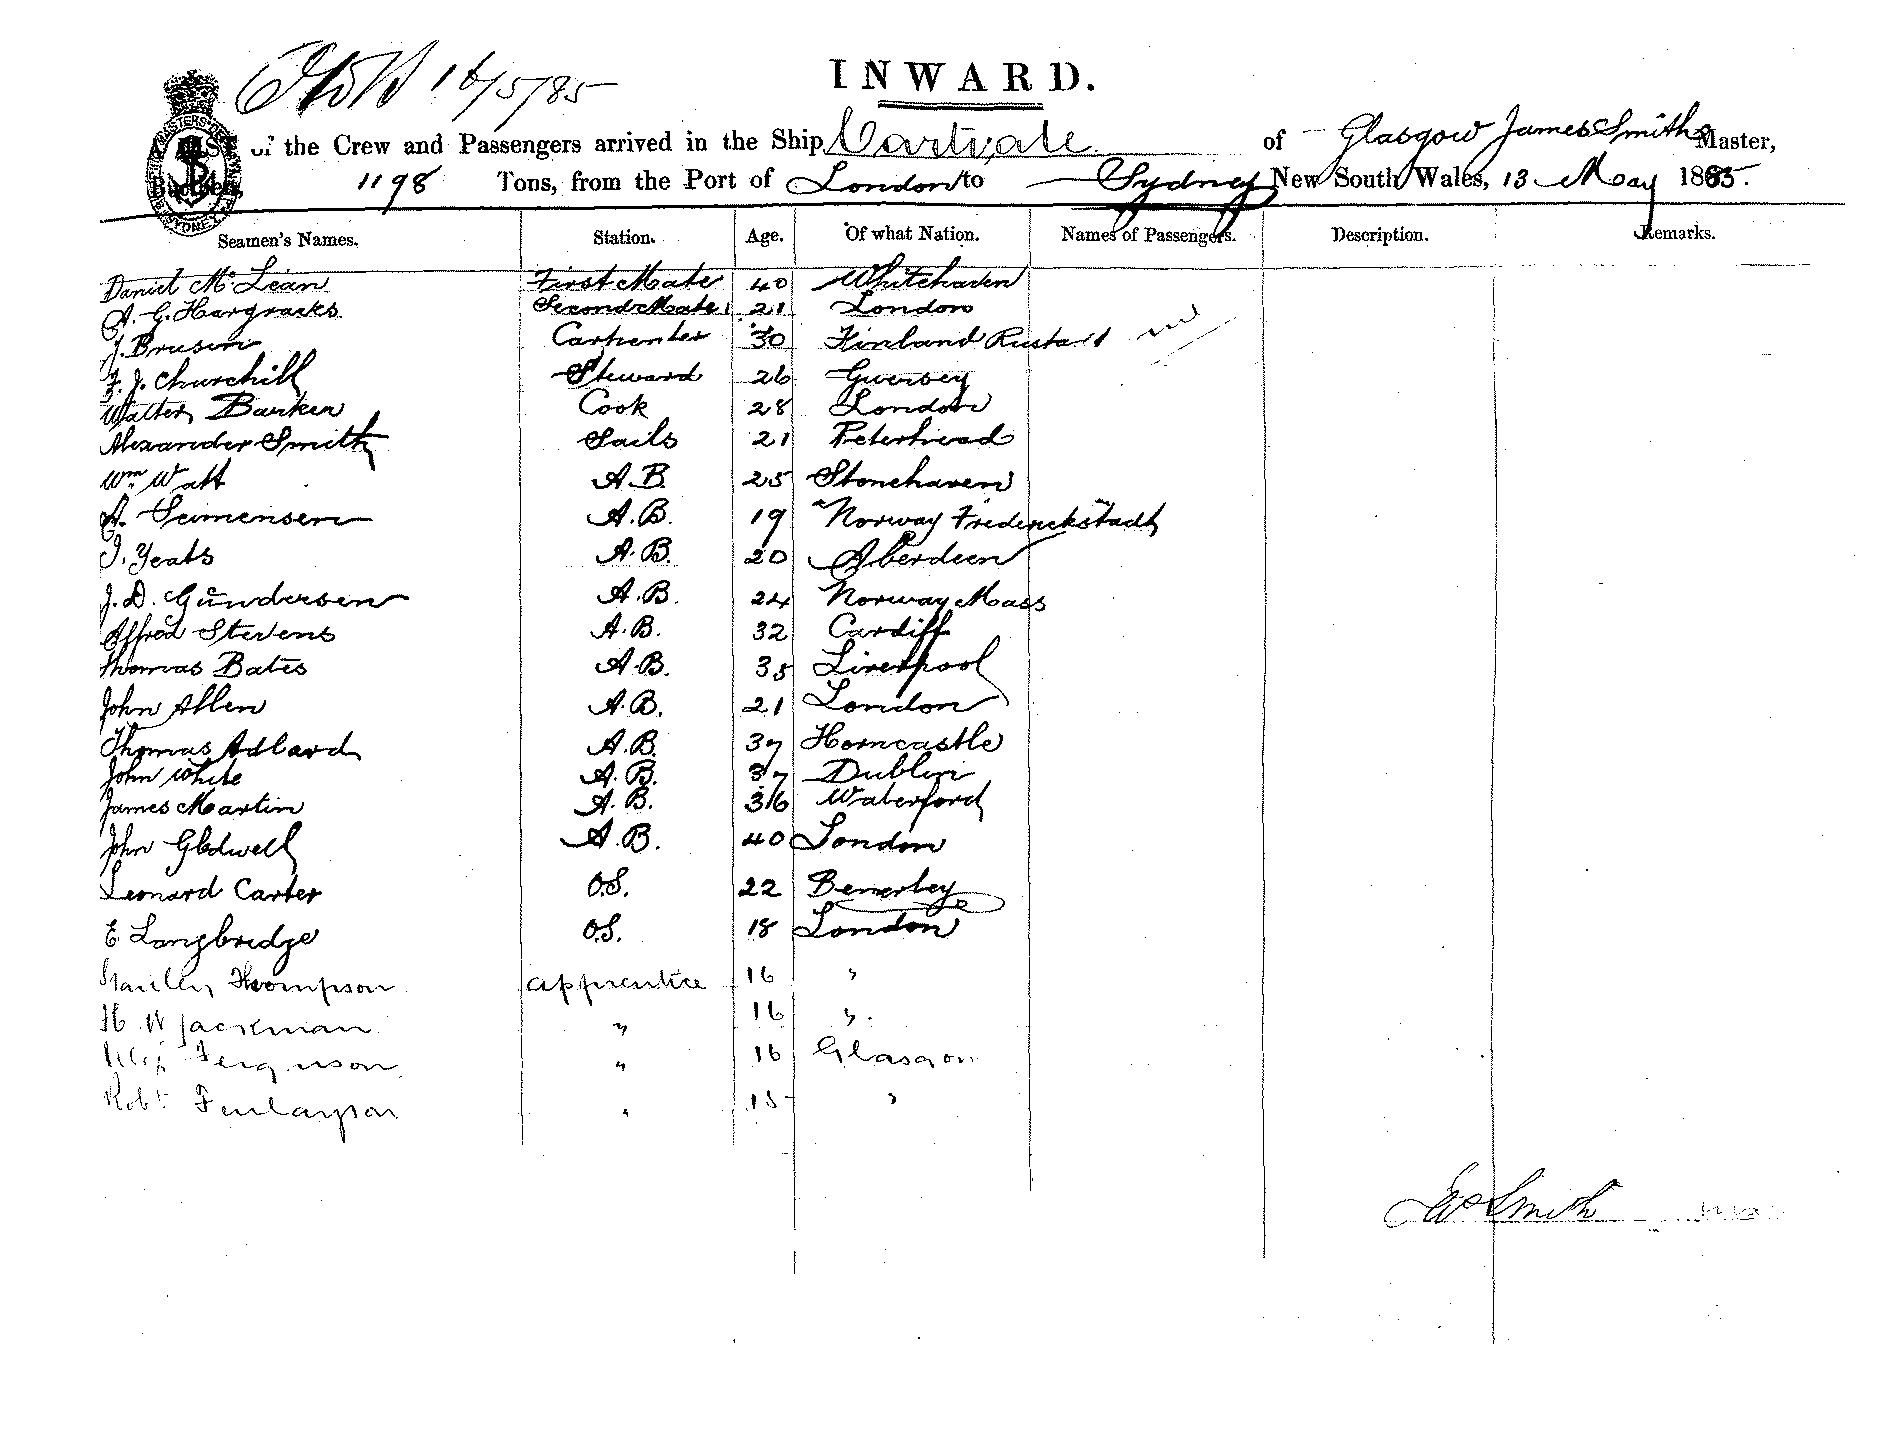 16/5/85
INWARD.
A LIST of the Crew and Passengers arrived in the Ship Cartvale of Glasgow James Smith Master,
Burthen, 1198 Tons, from the Port of London to Sydney New South Wales, 13 May 1885.
Seamen's Names. Station. Age. Of what Nation. Names of Passengers. Description. Remarks.
Daniel McLean First Mate 40 Whitehaven
A. G. Hargraeks Second Mate 21 London
J. Brusin Carpenter 30 Finland
F. J. Churchill Steward 26 Guersey
Walter Barker Cook 28 London
Alexander Smith Sails 21 Peterhead
Wm Watt A.B. 25 Stonehaven
A. Semensen A.B. 19 Norway Frederickstadt
J. Yeats A.B. 20 Aberdeen
J. D. Gundersen A.B. 24 Norway Mass
Alfred Stevens A.B. 32 Cardiff
Thomas Bates A.B. 35 Liverpool
John Allen A.B. 21 London
Thomas Adlard A.B. 37 Horncastle
John White A.B. 37 Dublin
James Martin A.B. 36 Waterford
John Gledwell A.B. 40 London
Leonard Carter O.S. 22 Bemerley
E. Langbridge O.S. 18 London
Thompson apprentice 16 "
H W Jackman " 16 "
Ferguson " 16 Glasgow
Robt Finlayson " 15 "
Jas Smith